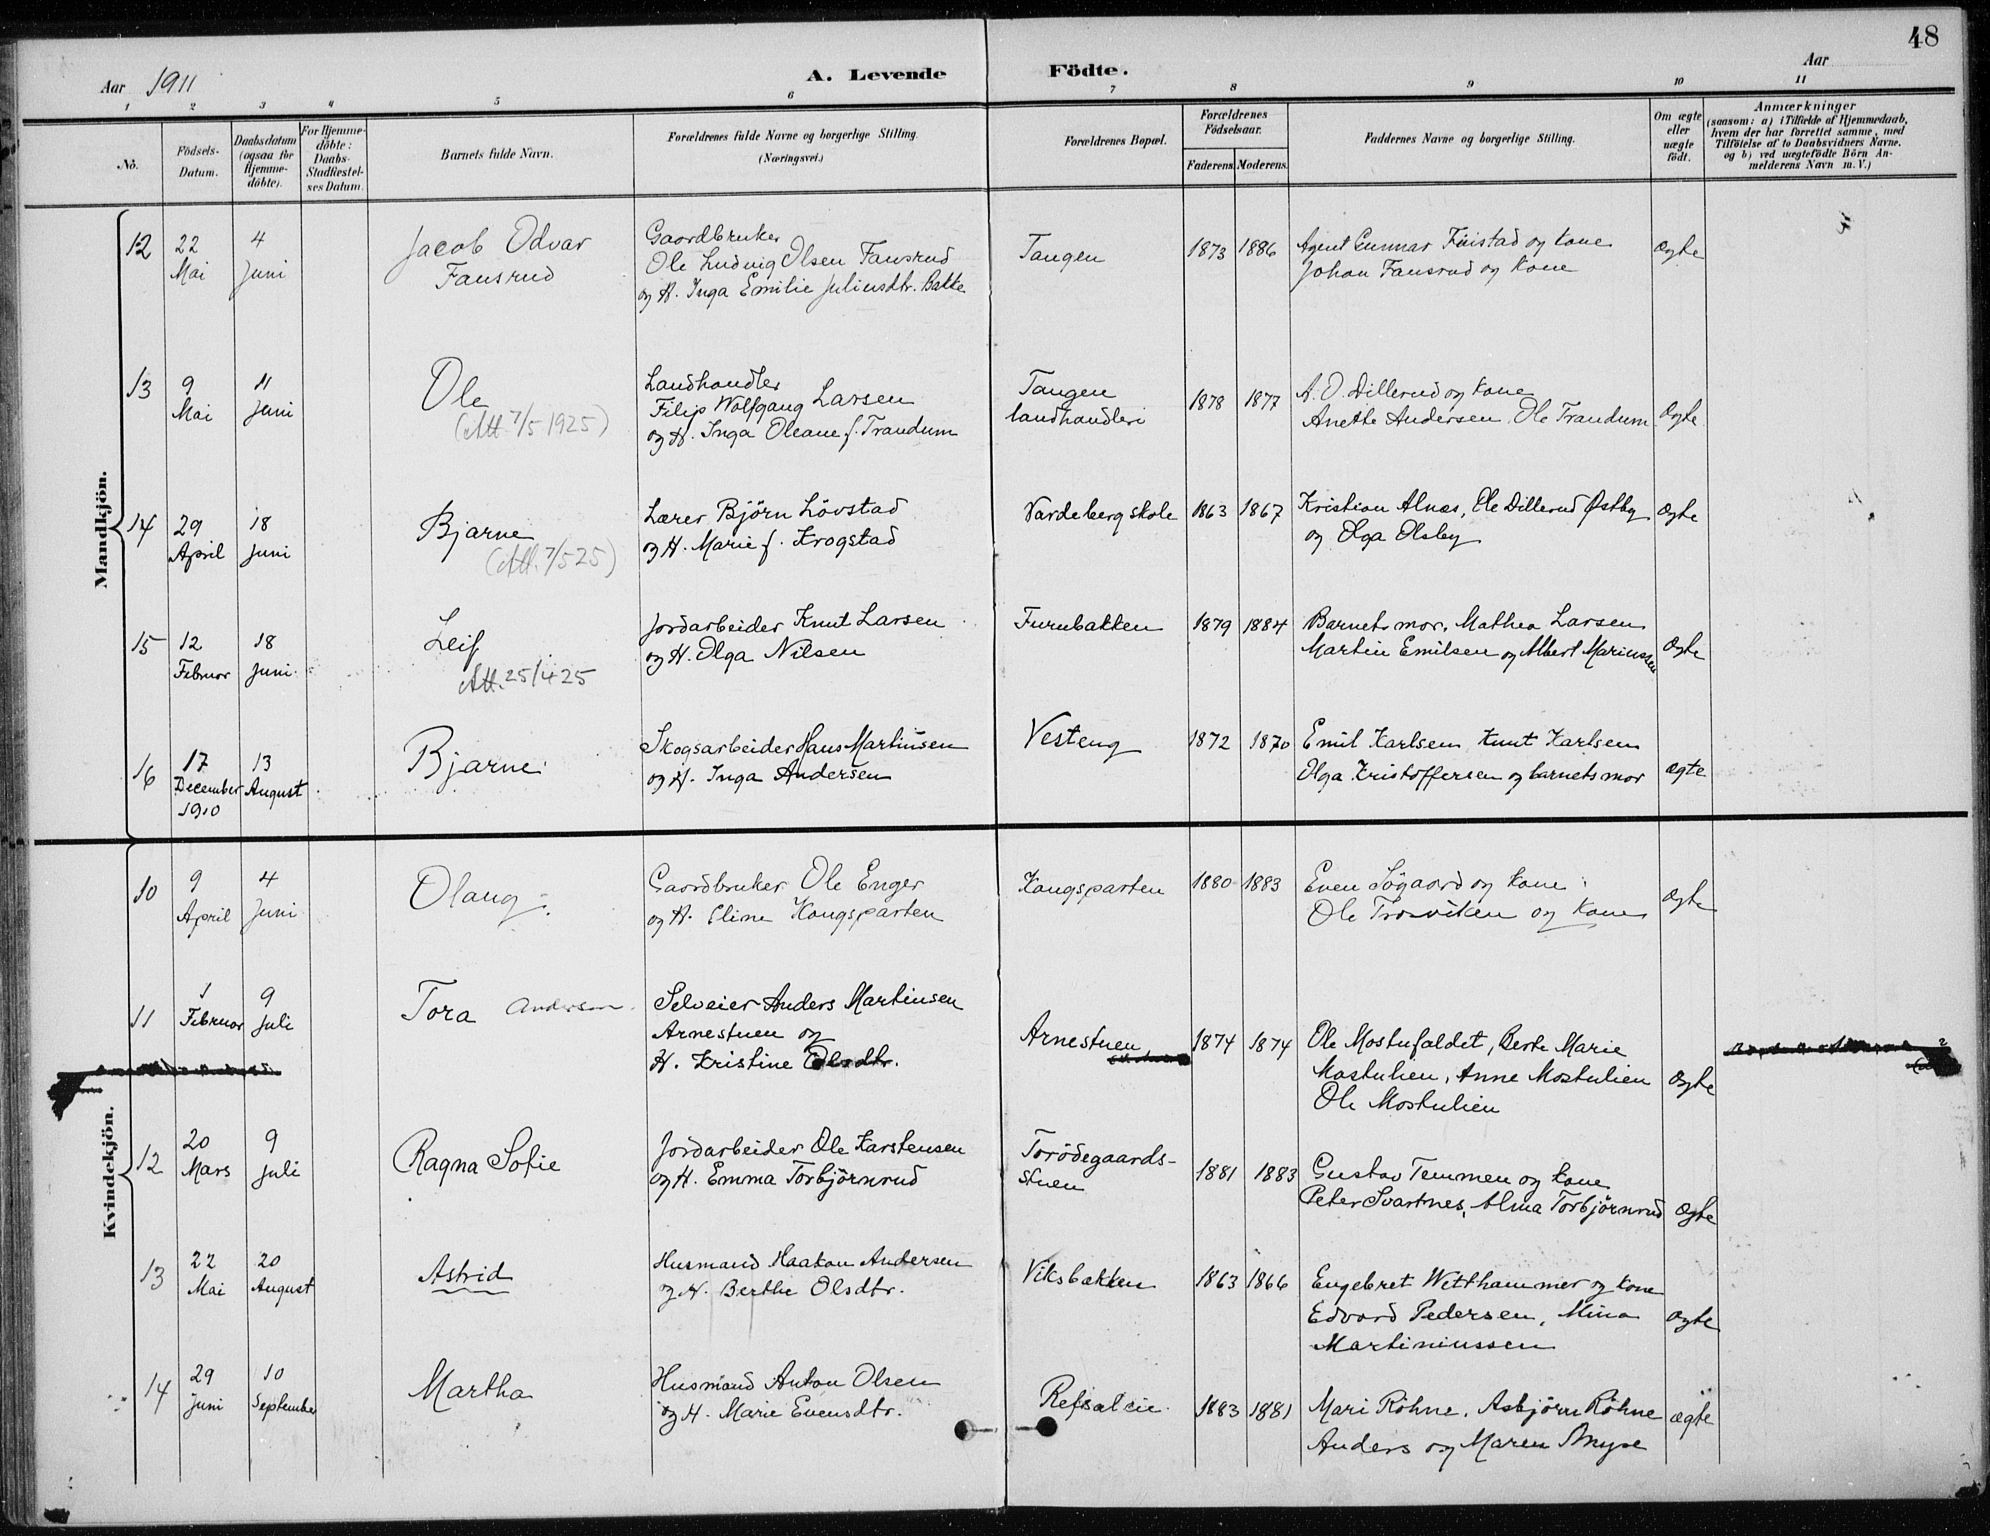 48
Aar 1911
A. Levende Födte.
Aar
1 2 3 4 5 6 7 8 9 10 11
No.
Födsels-Datum.
Daabsdatum (ogsaa for Hjemme-döbte).
For Hjemme-döbte: Daabs-Stadfæstel-ses Datum.
Barnets fulde Navn.
Forældrenes fulde Navne og borgerlige Stilling. (Næringsvei.)
Forældrenes Bopæl.
Forældrenes Födselsaar.
Faderens. Moderens.
Faddernes Navne og borgerlige Stilling.
Om ægte eller uægte födt.
Anmærkninger
(saasom: a) i Tilfælde af Hjemmedaab,
hvem der har forrettet samme, med
Tilföielse af to Daabsvidners Navne.
og b) ved uægtefödte Börn An-
melderens Navn m. V.)
Mandkjön.
12 22 Mai 4 Juni
Jacob Odvar Fausrud
Gaardbruker
Ole Ludvig Olsen Fausrud
og H. Inga Emilie Juliusdtr. Bakke
Tangen 1873 1886
Agent Gunnar Finstad og kone
Johan Fausrud og kone
Ægte
13 9 Mai 11 Juni
Ole
(Att. 7/5 1925)
Landhandler
Filip Wolfgang Larsen
og H. Inga Oleane f. Trandum
Tangen
landhandleri
1878 1877
A. O. Dillerud og kone
Anette Andersen Ole Trandum
Ægte
14 29 April 18 Juni
Bjarne
(Att. 7/5 25)
Lærer Björn Lövstad
og H. Marie f. Krogstad
Vardeberg skole 1863 1867
Kristian Alnæs, Ole Dillerud Østby
og Olga Olsby
Ægte
15 12 Februar 18 Juni
Leif
Att. 25/4 25
Jordarbeider Knut Larsen
og H. Olga Nilsen
Furubakken 1879 1884
Barnets mor, Mathea Larsen
Martin Emilsen og Albert Mariussen
Ægte
16 17 December 1910 13 August
Bjarne
Skogsarbeider Hans Martinsen
og H. Inga Andersen
Vesteng 1872 1870
Emil Karlsen Knut Karlsen
Olga Kristoffersen og barnets mor
ægte
Kvindekjön.
10 9 April 4 Juni
Olaug
Gaardbruker Ole Enger
og H. Eline Kongsparten
Kongsparten 1880 1883
Even Sögaard og kone
Ole Trosviken og kone
Ægte
11 1 Februar 9 Juli
Tora Andersen
Selveier Anders Martinsen
Arnestuen og
H. Kristine Olsdtr.
Arnestuen 1874 1874
Ole Mostufaldet, Berte Marie
Mostulien, Anne Mostulien
Ole Mostulien
Ægte
12 20 Mars 9 Juli
Ragna Sofie
Jordarbeider Ole Karstensen
og H. Emma Torbjörnrud
Torödegaards-
stuen
1881 1883
Gustav Temmen og kone
Peter Svartnes, Alma Torbjörnrud
Ægte
13 22 Mai 20 August
Astrid
Husmand Haakon Andersen
og H. Berthe Olsdtr.
Viksbakken 1863 1866
Engebret Wetthammer og kone
Edvard Pedersen, Mina
Martiniussen
Ægte
14 29 Juni 10 September
Martha
Husmand Anton Olsen
og H. Marie Evensdtr.
Refsaleie 1883 1881
Mari Röhne, Asbjörn Röhne
Anders og Maren Myse
ægte